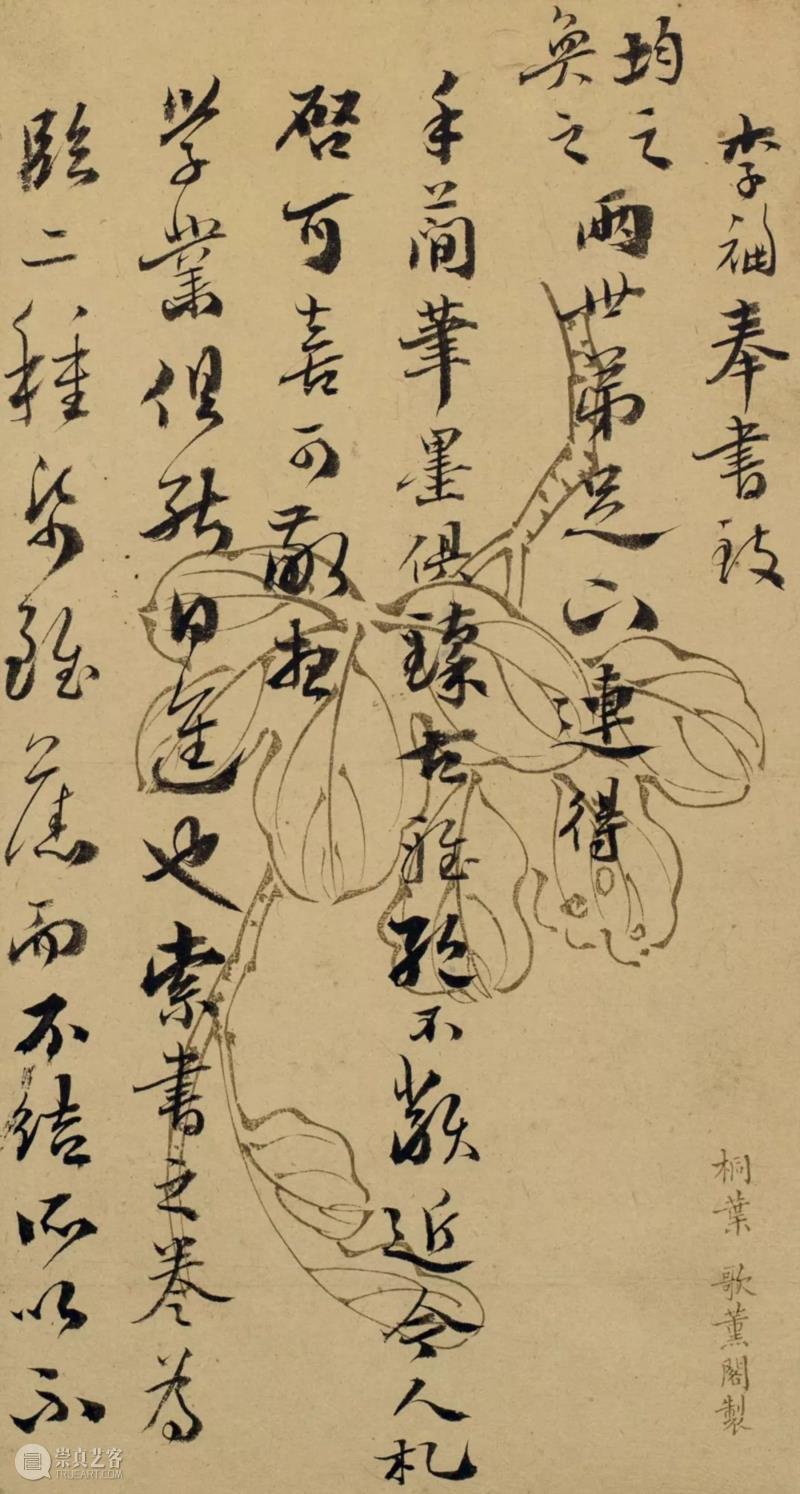 李福奉書致
均之
奐之
兩世弟足下連得
手簡筆墨俱臻古雅絕不類近今人札
啓可喜可敬想
學業但能日進也索書之卷為
臨二種雖而不結所以不
桐葉 歌薰閣製
崇真艺客
TRUEART.COM